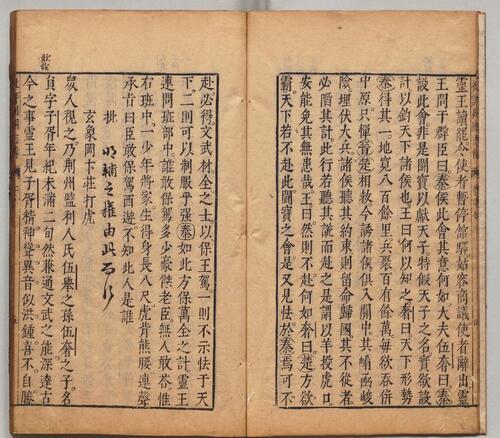 靈王讀罷令使者暫停館驛姑容商議使者辭出靈
王問于群臣曰秦侯此會其意何如大夫伍奢曰秦
設此會非是鬪寶以獻天子特假天子之名實欲設
計以鈞天下諸侯也王曰何以知之奢曰天下形勢
秦得其一地寬八百餘里兵聚百有餘萬每欲吞併
中原只憚晉楚相救今誘諸侯俱入關中其崤函峻
險埋伏大兵諸侯聽其約束則留命歸國其不從者
必陷其計此行若聽其議而赴之是謂以羊授虎口
安能免其無患哉王曰然則不赴何如奢曰楚方欲
霸天下若不赴此鬪寶之會是又見怯於秦焉可不
赴必得文武材全之士以保王駕一則不示怯于天
下二則可以制服乎强秦如此方保萬全之計靈王
連問班部中誰敢保駕多少豪傑老臣無人敢荅惟
右班中一少年將家生得身長八尺虎背熊腰連聲
承旨曰臣敢保駕西遊不知此人是誰
批 明輔之權由此而行
玄象岡卞莊打虎
眾人視之乃荆州監利人氏伍舉之孫伍奢之子名
員字子胥年紀未滿二旬然兼通文武之能深達古
今之事靈王見子胥精神聳異音似洪鍾喜不自勝